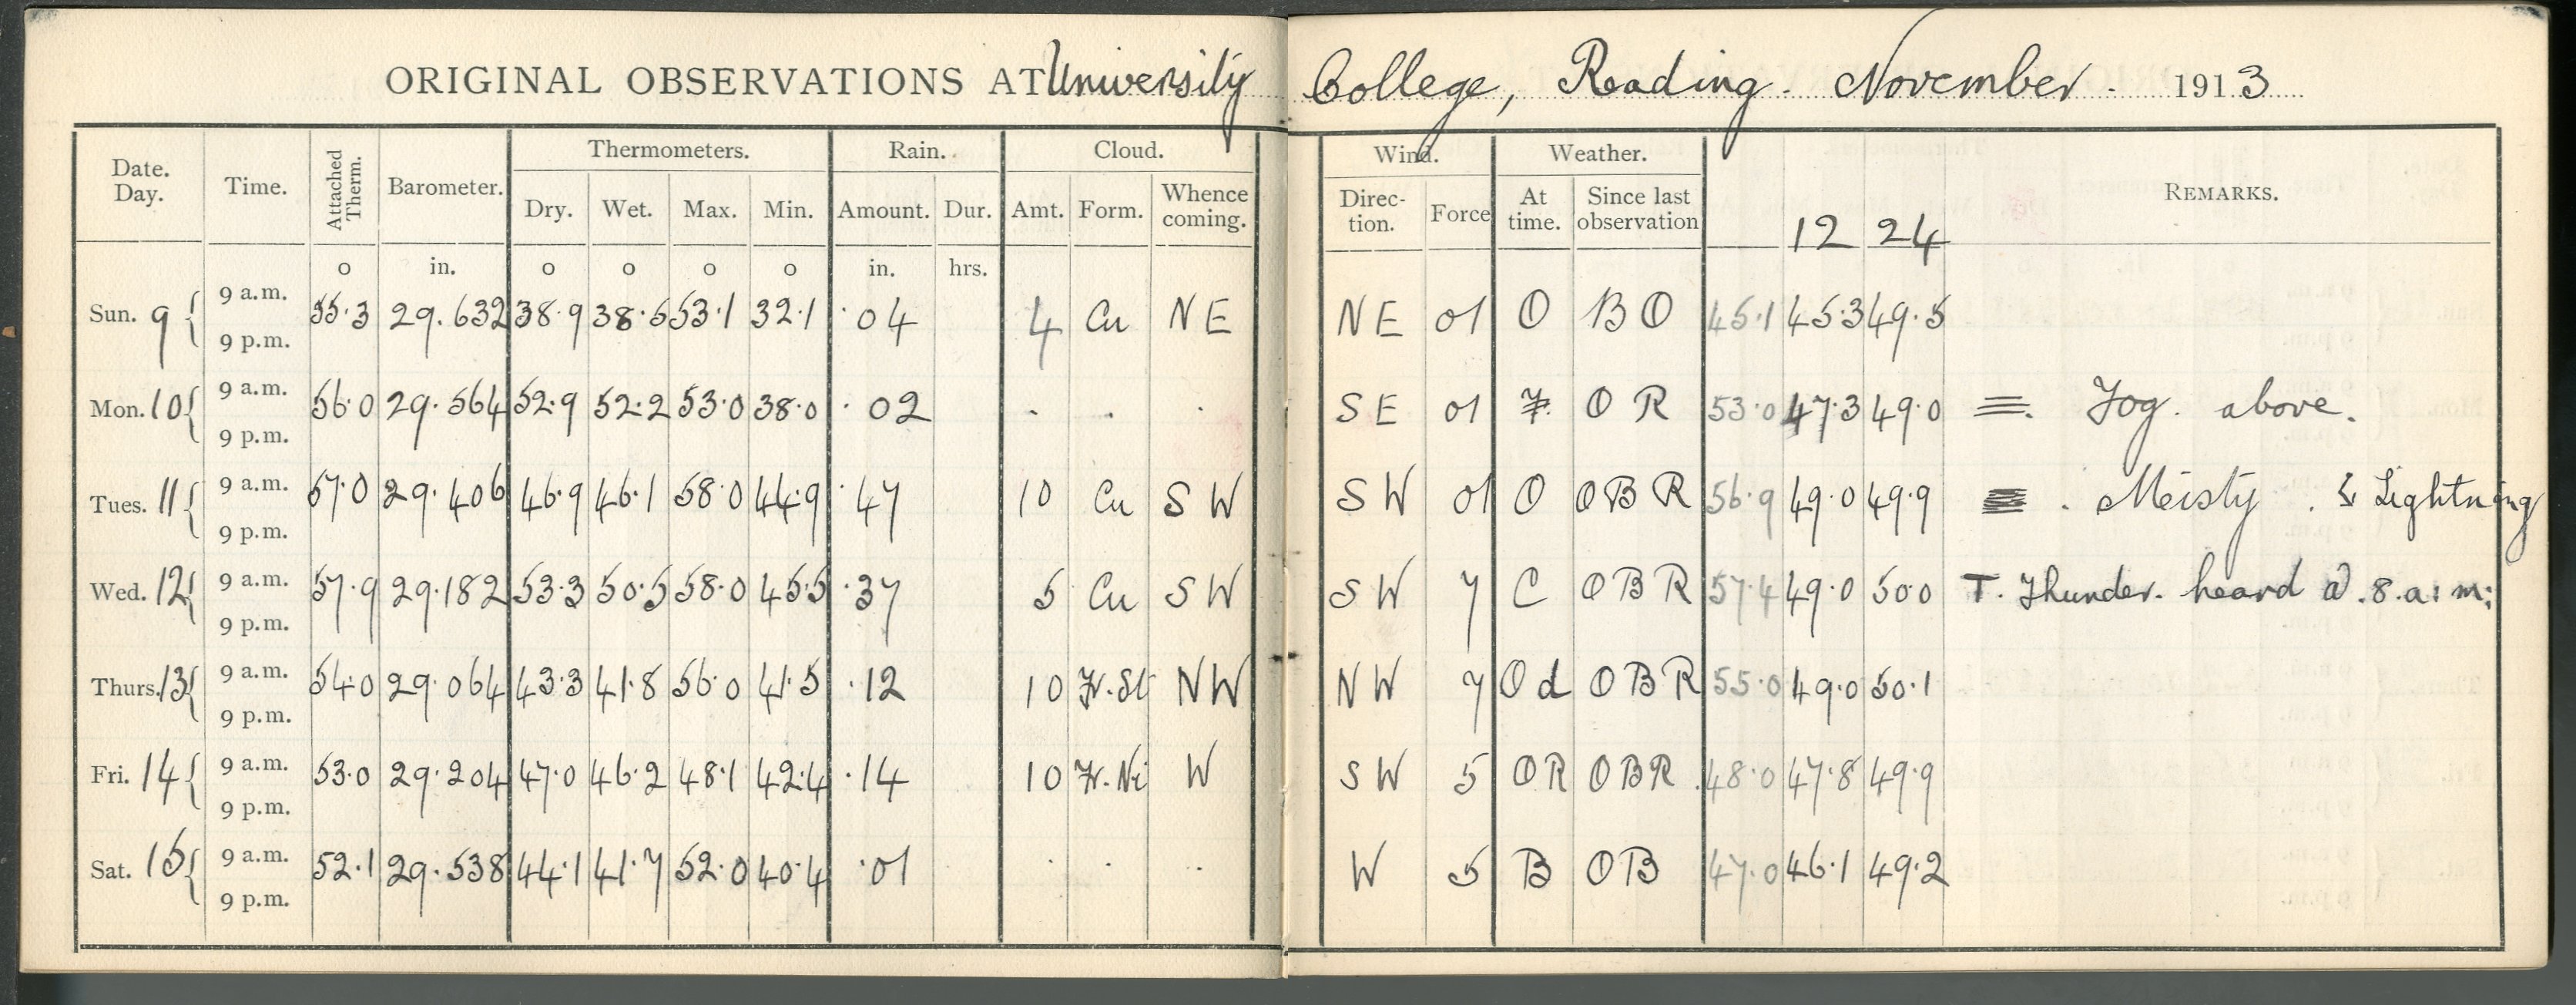 ORIGINAL OBSERVATIONS AT University College, Reading. November. 1913
Date. Day. Time. Attached Therm. Barometer. Thermometers. Rain. Cloud. Wind. Weather. REMARKS.
Dry. Wet. Max. Min. Amount. Dur. Amt. Form. Whence coming. Direc- tion. Force At time. Since last observation 12 24
o in. o o o o in. hrs.
Sun. 9 { 9 a.m. 55.3 29.632 38.9 38.5 53.1 32.1 .04 4 Cu NE NE 01 O BO 45.1 45.3 49.5
9 p.m.
Mon. 10 { 9 a.m. 56.0 29.564 52.9 52.2 53.0 38.0 .02 . . . SE 01 F. OR 53.0 47.3 49.0 ≡. Fog. above.
9 p.m.
Tues. 11 { 9 a.m. 57.0 29.406 46.9 46.1 58.0 44.9 .47 10 Cu SW SW 01 O OBR 56.9 49.0 49.9 . Meisty . & Lightning
9 p.m.
Wed. 12 { 9 a.m. 57.9 29.182 53.3 50.5 58.0 45.5 .37 5 Cu SW SW 7 C OBR 57.4 49.0 50.0 T. Thunder. heard @ .8.a.m;
9 p.m.
Thurs. 13 { 9 a.m. 54.0 29.064 43.3 41.8 56.0 41.5 .12 10 Fr.St NW NW 7 Od OBR 55.0 49.0 50.1
9 p.m.
Fri. 14 { 9 a.m. 53.0 29.204 47.0 46.2 48.1 42.4 .14 10 Fr.Ni W SW 5 OR OBR 48.0 47.8 49.9
9 p.m.
Sat. 15 { 9 a.m. 52.1 29.538 44.1 41.7 52.0 40.4 .01 . . .. W 5 B OB 47.0 46.1 49.2
9 p.m.